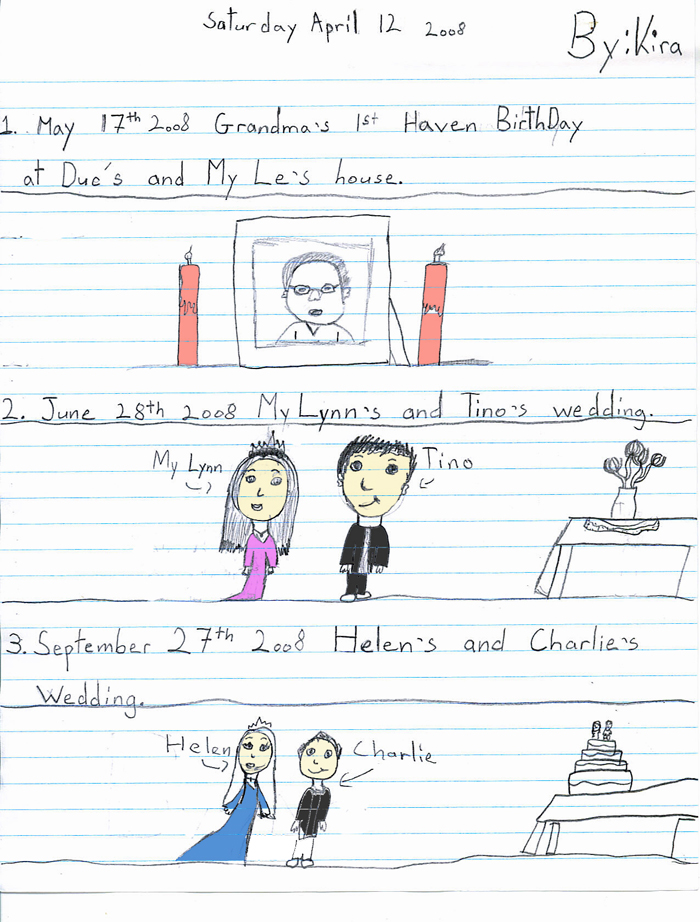 Saturday April 12 2008
By: Kira
1. May 17th 2008 Grandma's 1st Haven BirthDay
at Duc's and My Le's house.
2. June 28th 2008 My Lynn's and Tino's wedding.
My Lynn
Tino
3. September 27th 2008 Helen's and Charlie's
Wedding.
Helen
Charlie